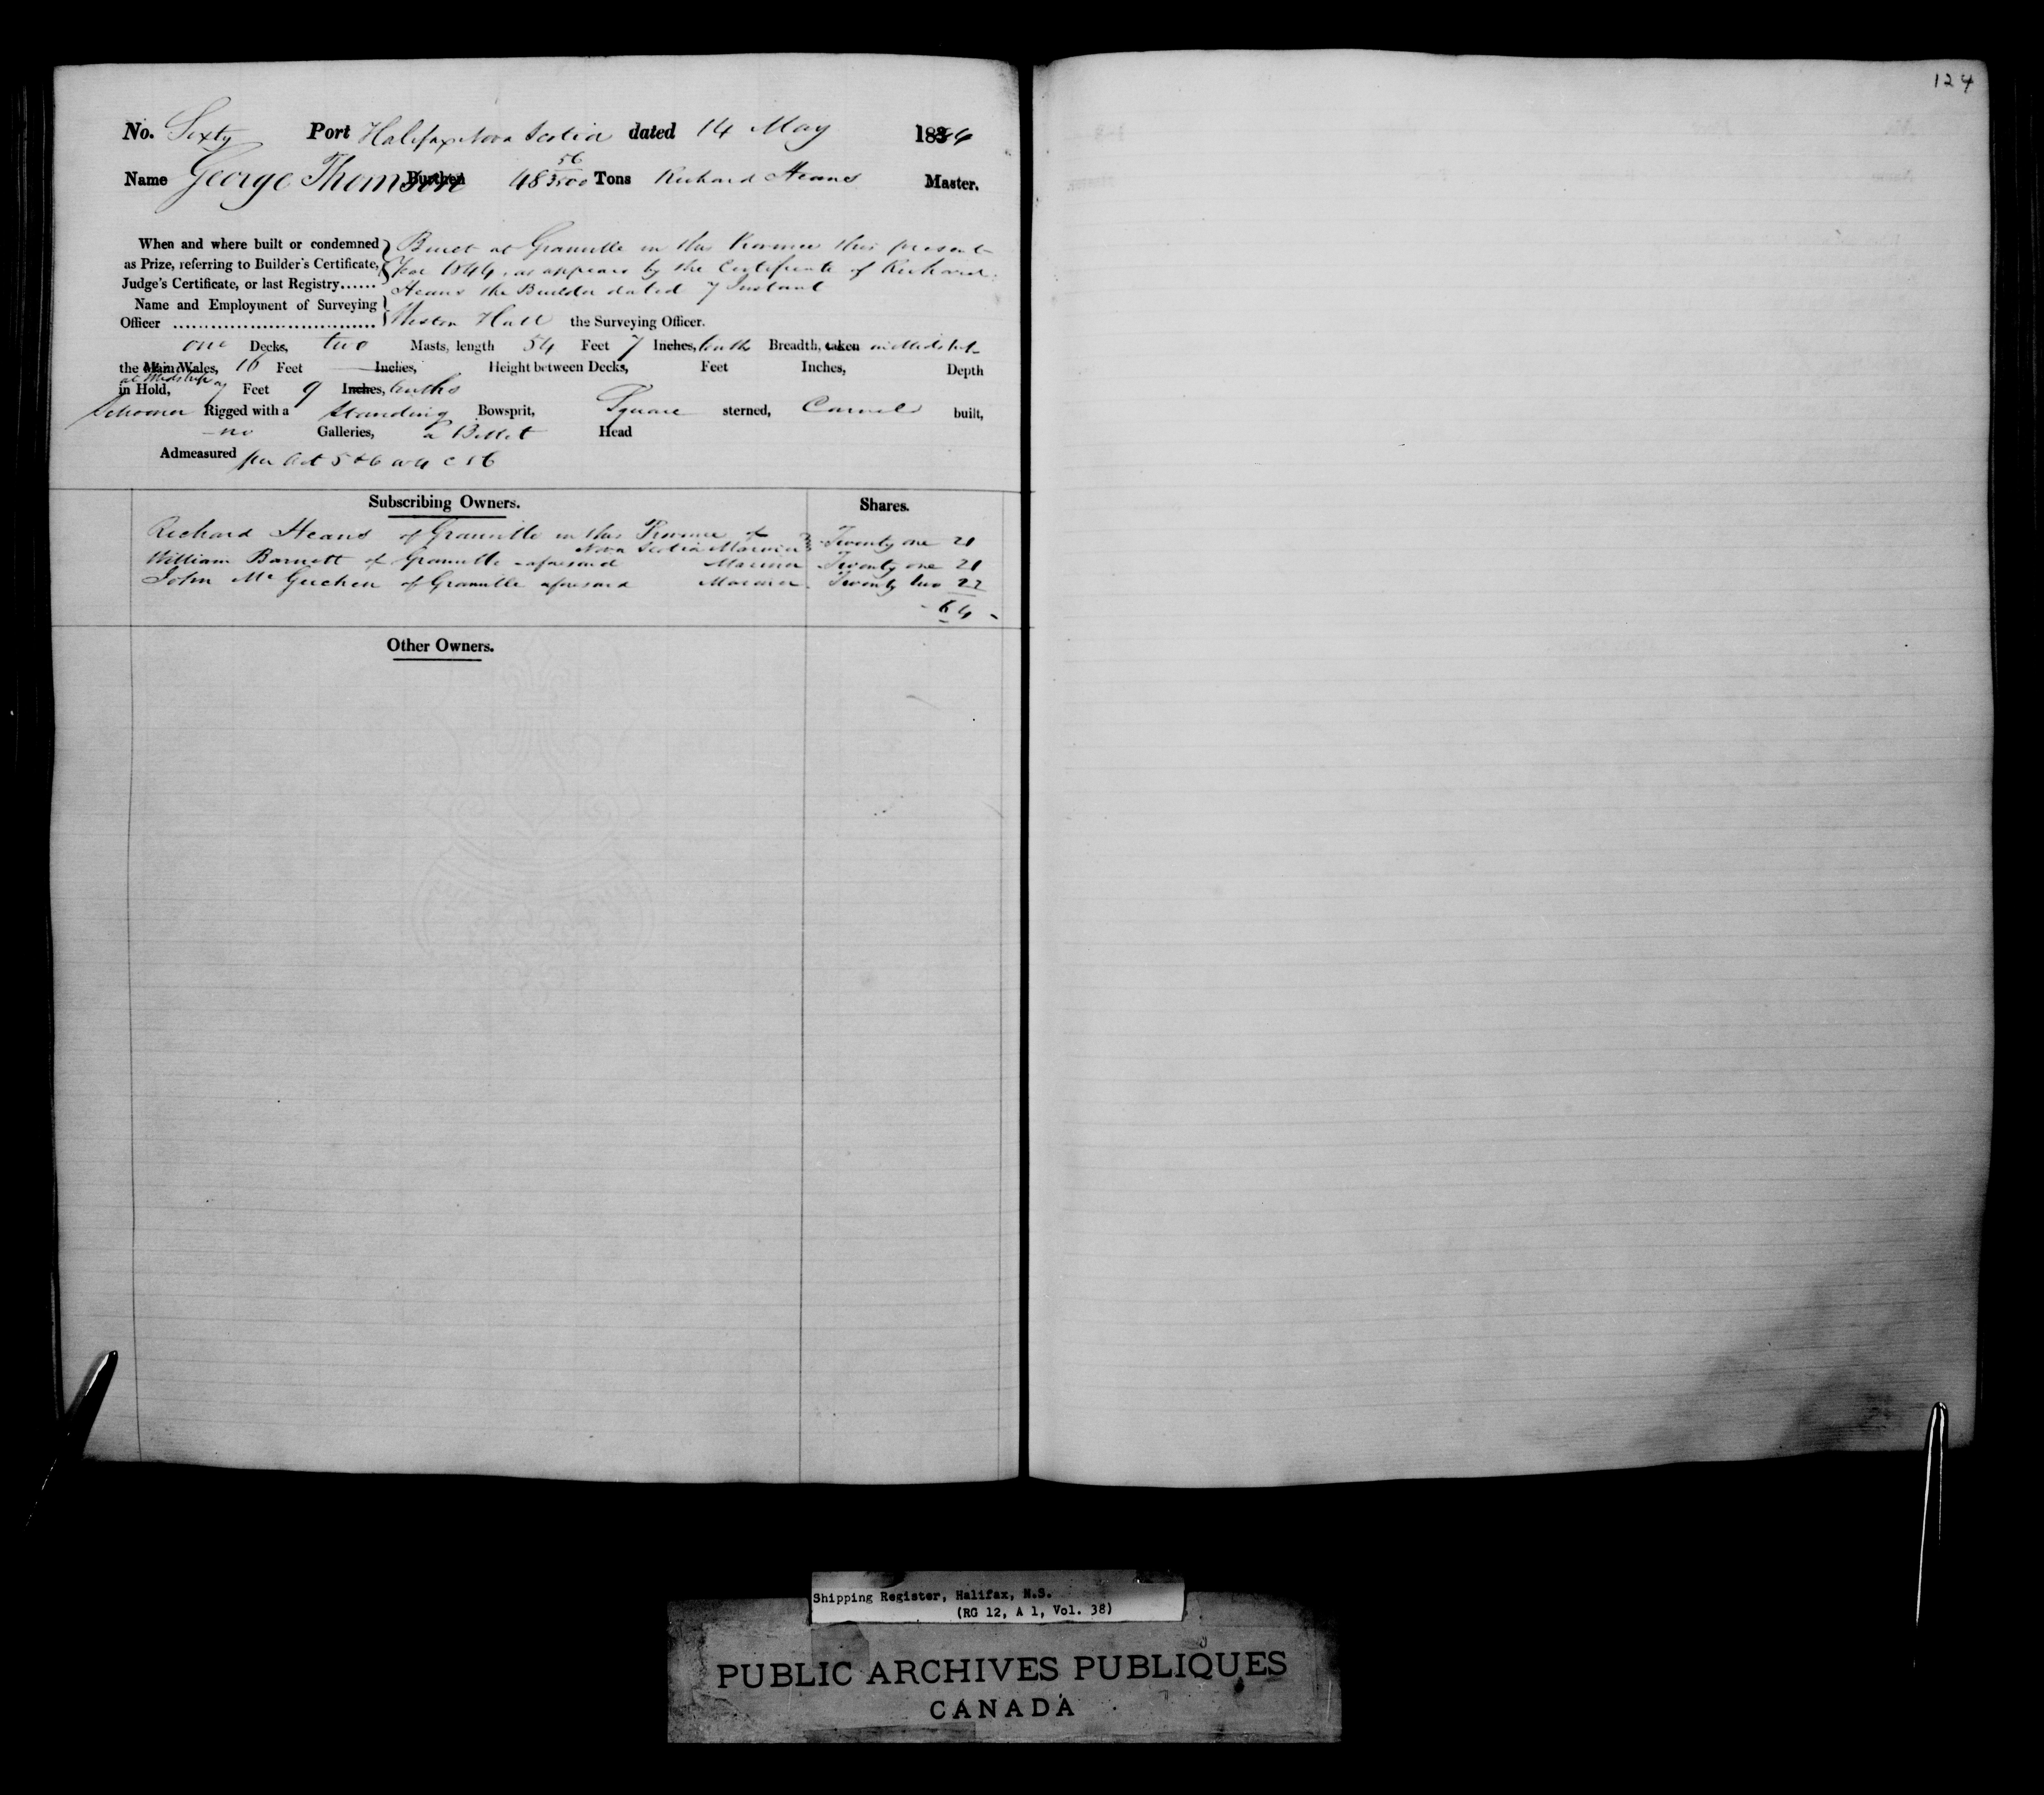 124
No. Sixty Port Halifax Nova Scotia dated 14 May 1844
Name George Thomson Burthen 48 56/3500 Tons Richard Heans Master.
When and where built or condemned as Prize, referring to Builder's Certificate, Judge's Certificate, or last Registry......
Built at Granville in this Province this present
Year 1844, as appears by the Certificate of Richard
Heans the Builder dated 7 Instant
Name and Employment of Surveying
Officer .................................. Weston Hall the Surveying Officer.
one Decks, two Masts, length 54 Feet 7 Inches, tenths Breadth, taken midships
the Main Wales, 16 Feet Inches, Height between Decks, Feet Inches, Depth
at Midships
in Hold, 7 Feet 9 Inches, tenths
Schooner Rigged with a Standing Bowsprit, Square sterned, Carvel built,
no Galleries, a Billet Head
Admeasured per Act 5 & 6 W 4 C 56
Subscribing Owners. Shares.
Richard Heans of Granville in this Province of
Nova Scotia Mariner Twenty one 21
William Barnett of Granville aforesaid Mariner Twenty one 21
John Mc of Granville aforesaid Mariner Twenty two 22
64
Other Owners.
Shipping Register, Halifax, N.S.
(RG 12, A 1, Vol. 38)
PUBLIC ARCHIVES PUBLIQUES
CANADA